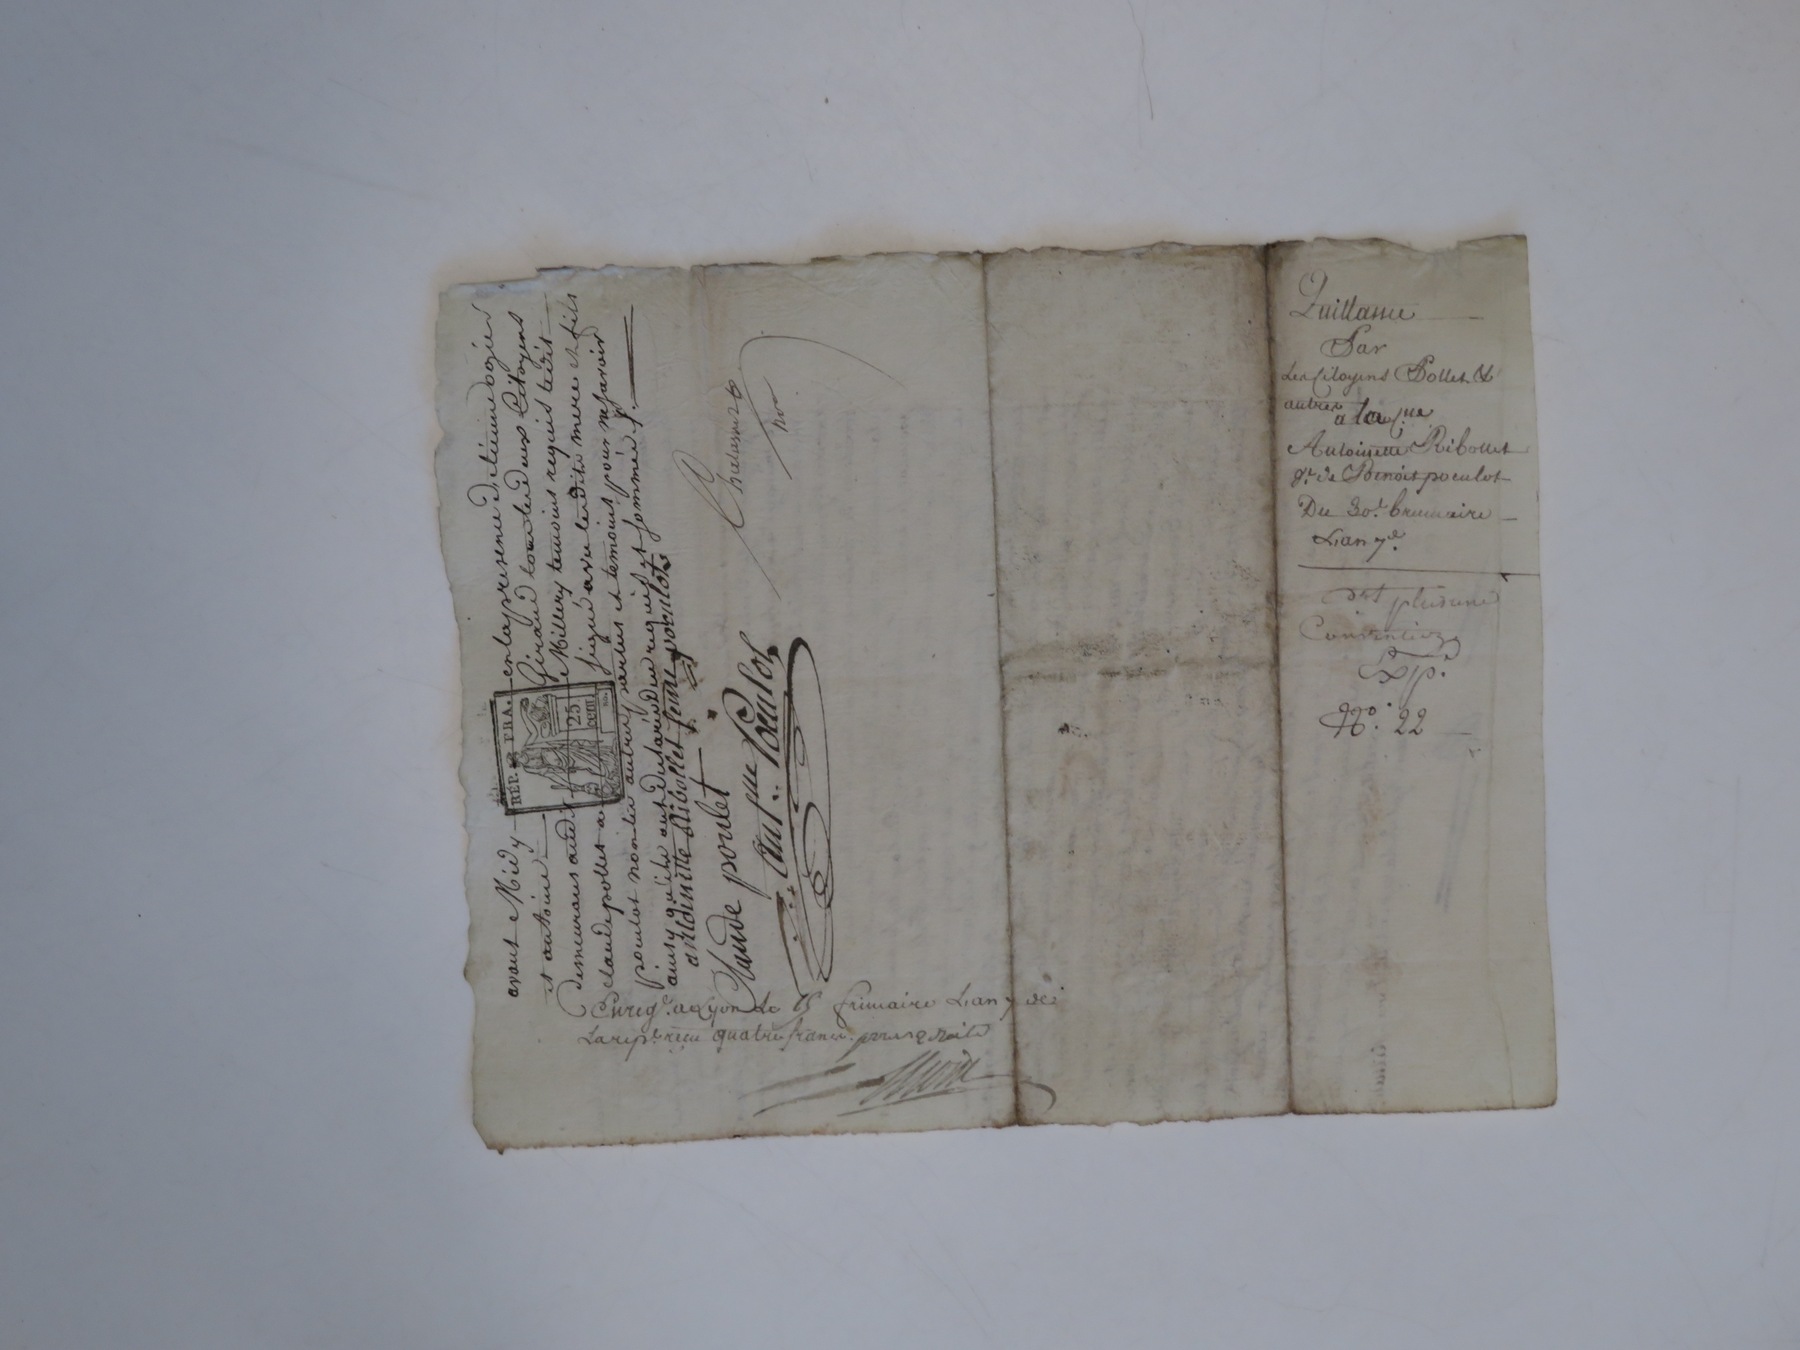 avant Midy en la presence d'etienne dogier
et antoine Giraud tous les deux Citoyens
demeurans audit Millery temoins requis ledit
claude pollet a signé avec lesdits mere et fils
poculot non les autres parties et temoins pour ne savoir
ainsy qu'ils ont declaré de ce requis et sommés /.
antoinette Ribollet femme poculot
Claude poulet
Jaque Poculot
RÉP. FRA.
25
cent.
not.
Enreg.e a Lyon le 15 frimaire L'an 7 de
La rep.e reçu quatre francs
Quittance
Par
Les Citoyens Pollet &
autres
a la C.ne
Antoinette Ribollet
v.e de Benoit poculot
Du 30.e brumaire
L'an 7.e
plusieurs
Conventions
Exp.
N.o 22